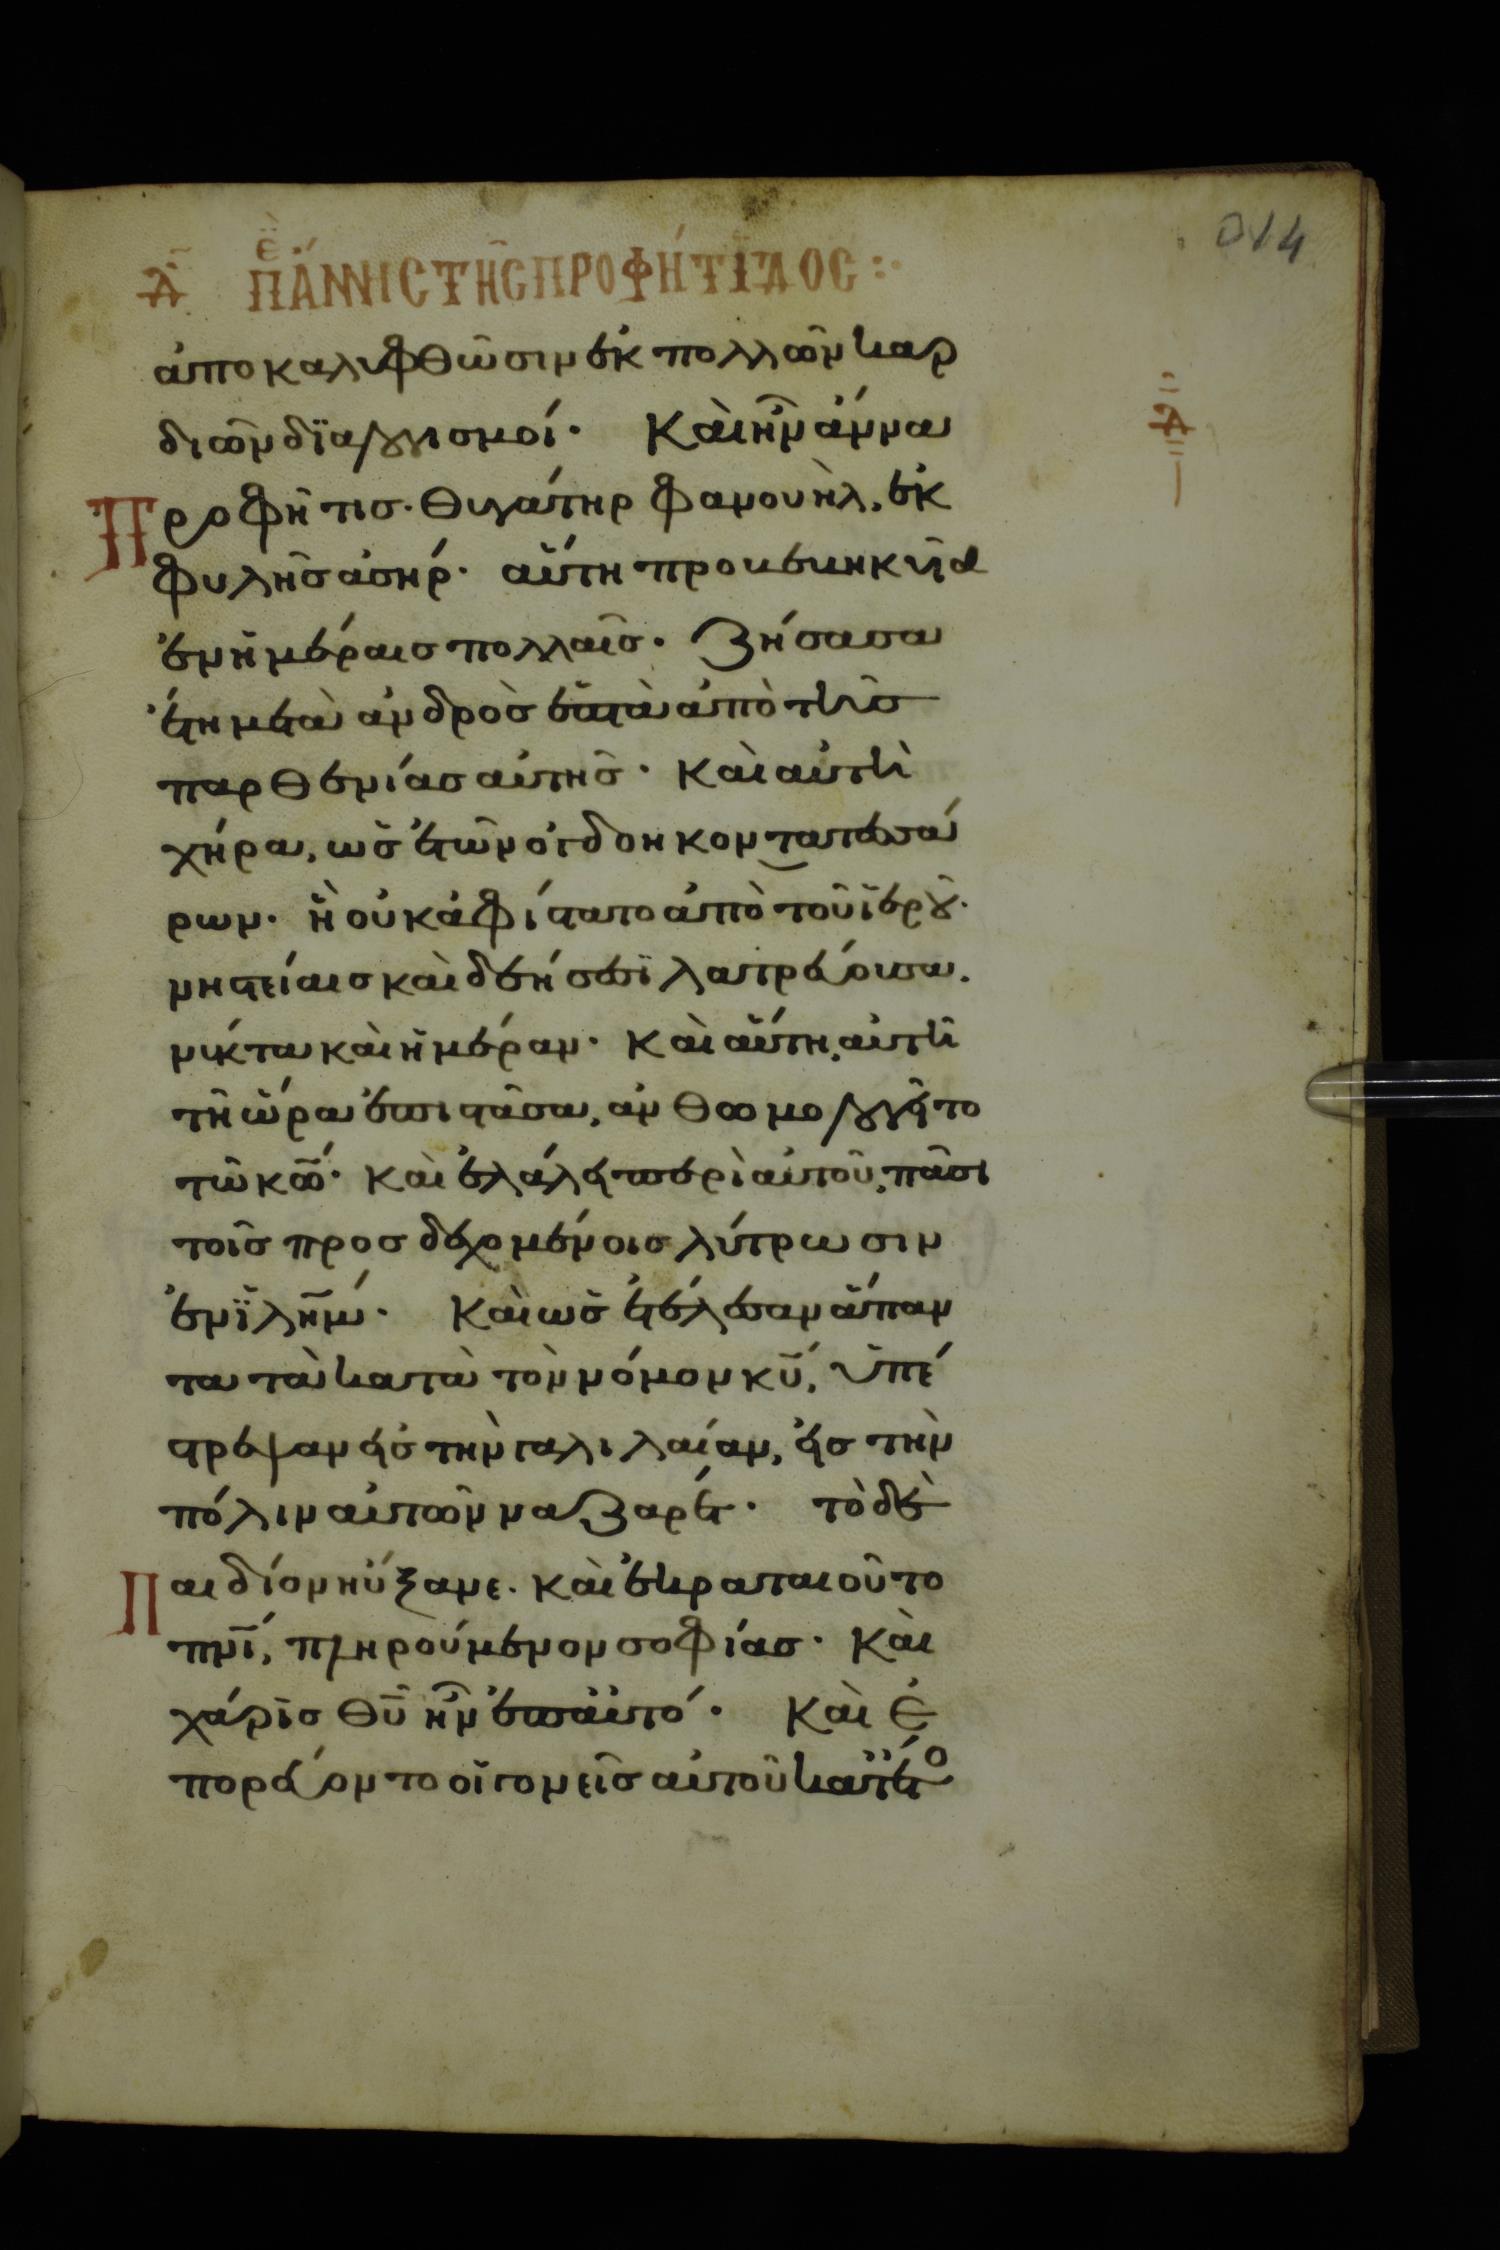 014
Δ̄ ἘΠῚ ἌΝΝΙΣ ΤΗ͂Σ ΠΡΟΦΉΤΙΔΟΣ :·
ἀποκαλυφθῶσιν ἐκ πολλῶν καρ
διῶν διαλογισμοί· Καὶ ἦν ἄννα
προφῆτις. θυγάτηρ φανουὴλ, ἐκ
φυλῆς ἀσήρ· αὕτη προβεβηκυῖα
ἐν ἡμέραις πολλαῖς· ζήσασα
ἔτη μετὰ ἀνδρὸς ἑπτὰ ἀπὸ τῆς
παρθενίας αὐτῆς· καὶ αὐτὴ
χήρα, ὡς ἐτῶν ὀγδοηκοντατεσσά
ρων· ἣ οὐκ ἀφίστατο ἀπὸ τοῦ ἱεροῦ.
νηστείαις καὶ δεήσεσι λατρεύουσα.
νύκτα καὶ ἡμέραν· καὶ αὕτη, αὐτῆ
τῆ ὥρα ἐπιστᾶσα, ἀνθωμολογεῖτο
τῶ κῶ̄· καὶ ἐλάλει περὶ αὐτοῦ, πᾶσι
τοῖς προσδεχομένοις λύτρωσιν
ἐν ϊλη̄μ· Καὶ ὡς ἐτέλεσαν ἅπαν
τα τὰ κατὰ τὸν νόμον κῡ, ὑπέ
στρεψαν εἰς τὴν γαλιλαίαν, εἰς τὴν
πόλιν αὐτῶν ναζαρέτ· τὸ δὲ
παιδίον ηὔξανε. καὶ ἐκραταιοῦτο
πν̄ι, πληρούμενον σοφίας· καὶ
χάρις θῡ ἦν ἐπ' αὐτό· Καὶ ἐ
πορεύοντο οἱ γονεῖς αὐτοῦ κατ' ἔτο
Δ̄